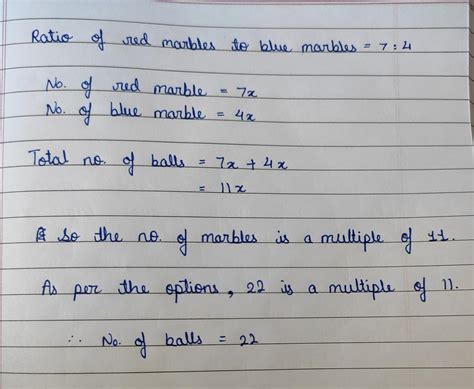 Ratio of red marbles to blue marbles = 7:4
No. of red marble = 7x
No. of blue marble = 4x
Total no. of balls = 7x + 4x
= 11x
So the no. of marbles is a multiple of 11.
As per the options, 22 is a multiple of 11.
∴ No. of balls = 22